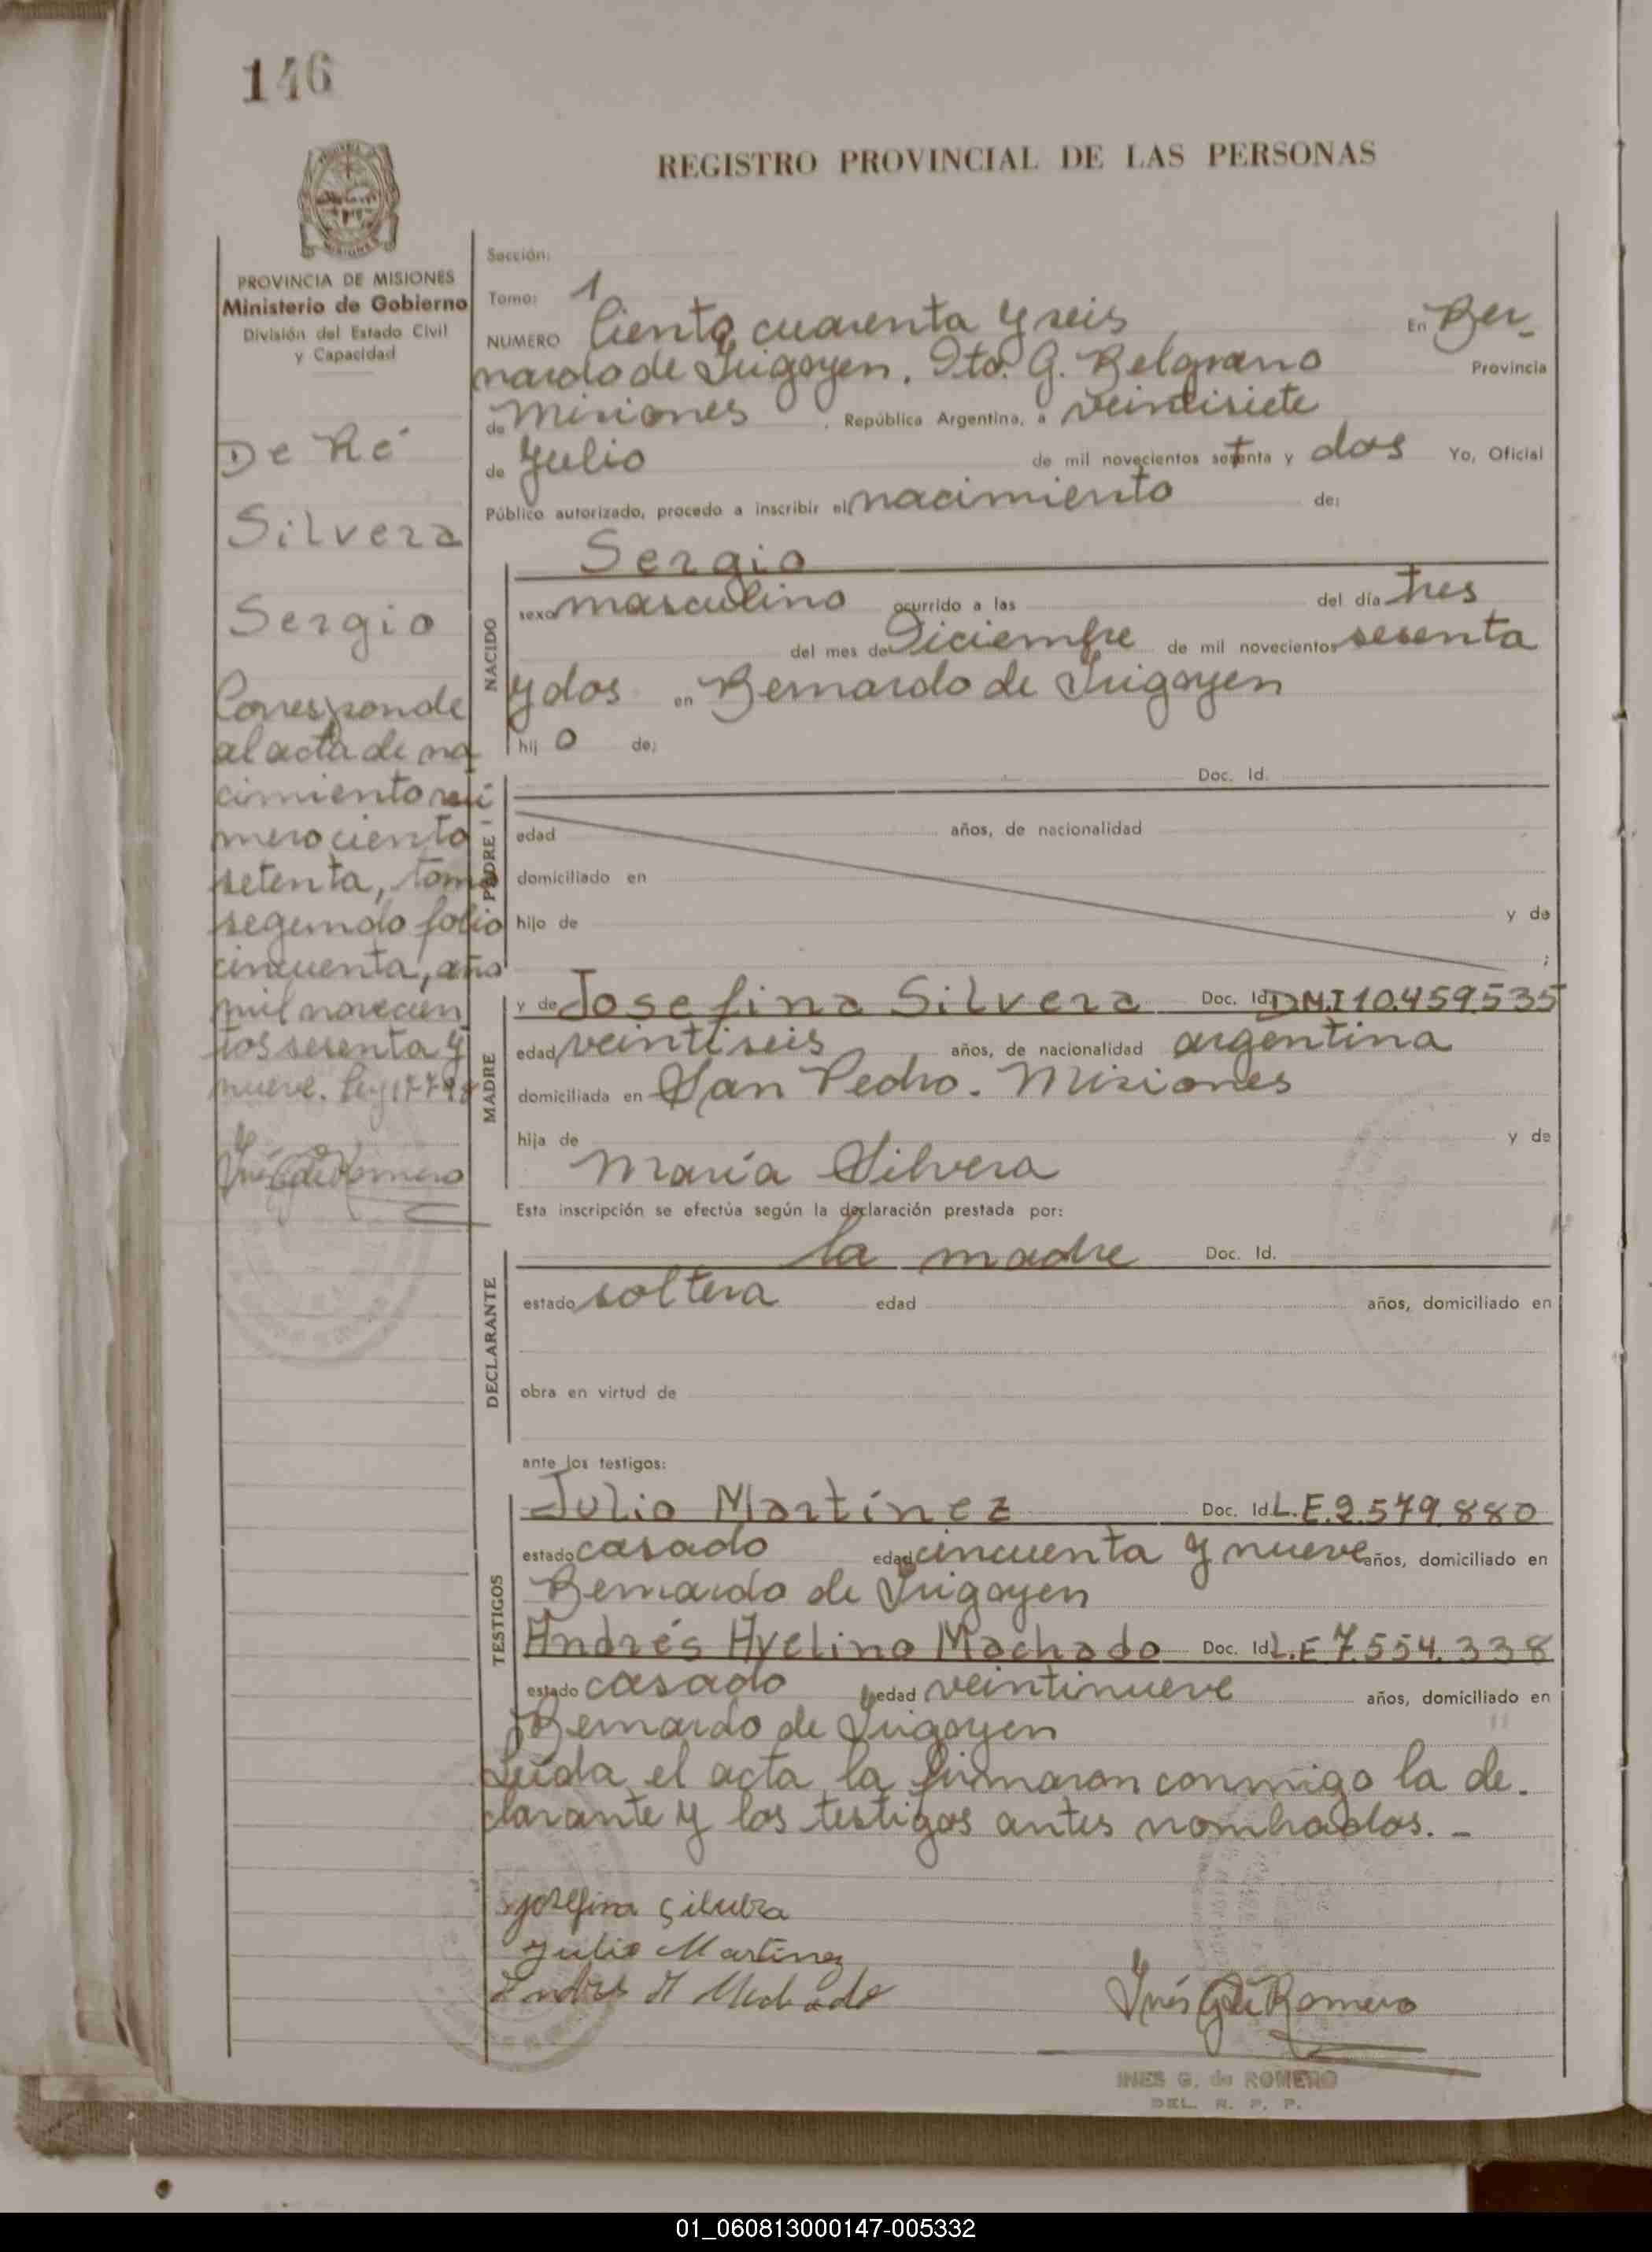 146
REGISTRO PROVINCIAL DE LAS PERSONAS
PROVINCIA DE MISIONES
Ministerio de Gobierno
División del Estado Civil
y Capacidad
De Ré
Silvera
Sergio
Corresponde
al acta de na
cimiento nú
mero ciento
setenta, tomo
segundo folio
cincuenta, año
mil novecien
tos sesenta y
nueve. Ley 17798
Inés G de Romero
Sección:
Tomo: 1
NUMERO Ciento cuarenta y seis En Ber-
nardo de Irigoyen. Dto. G. Belgrano Provincia
de Misiones, República Argentina, a veintisiete
de Julio de mil novecientos setenta y dos Yo, Oficial
Público autorizado, procedo a inscribir el nacimiento de:
Sergio
NACIDO
sexo masculino ocurrido a las del día tres
del mes de Diciembre de mil novecientos sesenta
y dos en Bernardo de Irigoyen
hij o de:
Doc. Id.
PADRE
edad años, de nacionalidad
domiciliado en
hijo de y de
;
MADRE
y de Josefina Silvera Doc. Id. D.N.I 10.459.535
edad veintiseis años, de nacionalidad argentina
domiciliada en San Pedro. Misiones
hija de y de
María Silvera
Esta inscripción se efectúa según la declaración prestada por:
DECLARANTE
la madre Doc. Id.
estado soltera edad años, domiciliado en
obra en virtud de
ante los testigos:
TESTIGOS
Julio Martínez Doc. Id. L.E. 2.579.880
estado casado edad cincuenta y nueve años, domiciliado en
Bernardo de Irigoyen
Andrés Avelino Machado Doc. Id. L.E 7.554.338
estado casado edad veintinueve años, domiciliado en
Bernardo de Irigoyen
Leída el acta la firmaron conmigo la de-
clarante y los testigos antes nombrados. -
Josefina Silvera
Julio Martinez
Andres A Machado
Inés G de Romero
INES G. de ROMERO
DEL. R. P. P.
01_060813000147-005332